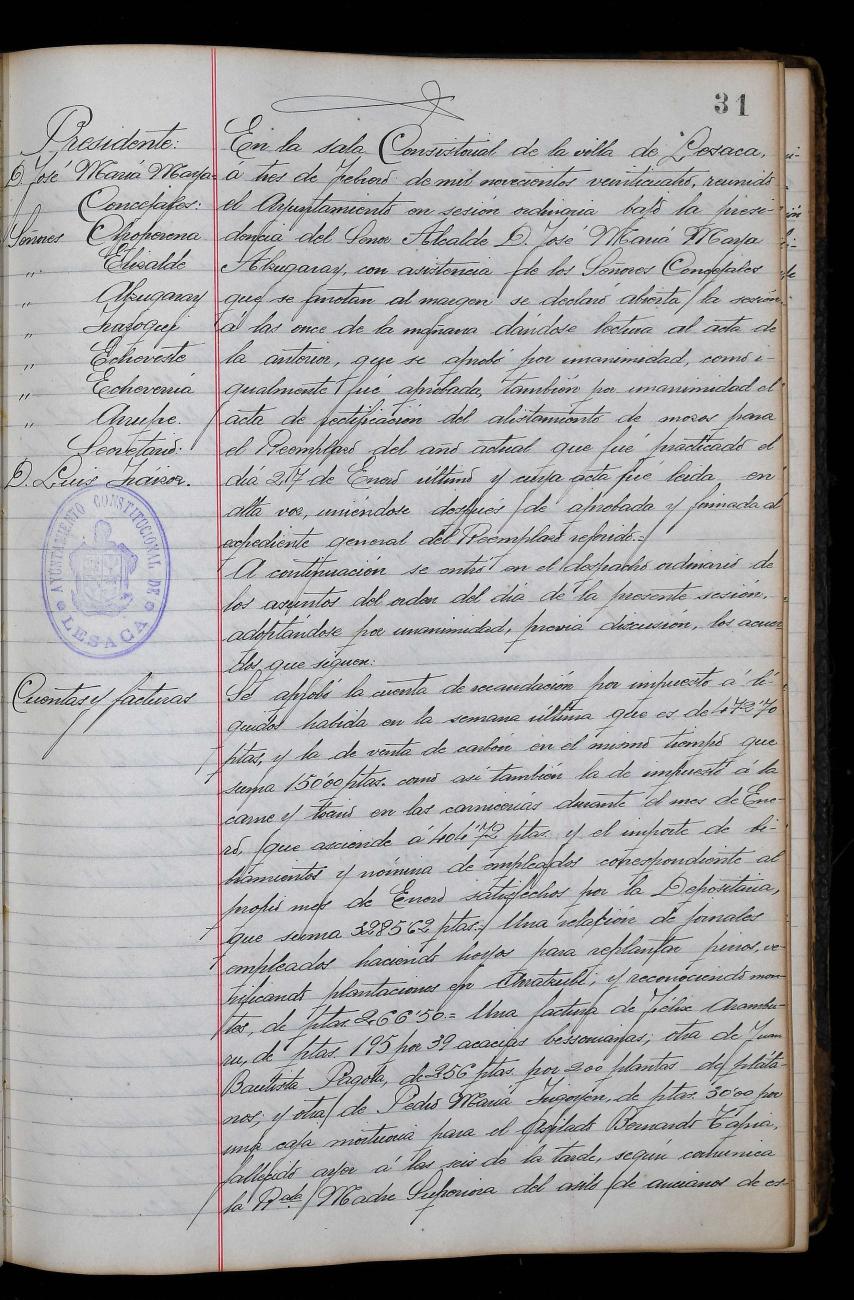 31
Presidente:
D. José María Maya
Concejales:
Señores Choperena
" Elizalde
" Alzugaray
" Irazoqui
" Echeveste
" Echeverria
" Arrupe.
Secretario:
D. Luis
AYUNTAMIENTO CONSTITUCIONAL DE
LESACA
En la sala Consistorial de la villa de Lesaca,
á tres de Febrero de mil novecientos veinticuatro, reunido
el Ayuntamiento en sesión ordinaria bajo la presi-
dencia del Señor Alcalde D. José María Maya
Alzugaray, con asistencia de los Señores Concejales
que se anotan al margen se declaró abierta la sesión
á las once de la mañana dándose lectura al acta de
la anterior, que se aprobó por unanimidad, como i-
gualmente fué aprobada, también por unanimidad el
acta de rectificación del alistamiento de mozos para
el Reemplazo del año actual que fué practicado el
día 27 de Enero último y cuya acta fué leida en
alta voz, uniéndose después de aprobada y firmada al
expediente general del Reemplazo referido.=
A continuación se entró en el despacho ordinario de
los asuntos del orden del día de la presente sesión,
adoptándose por unanimidad, previa discusión, los acuer
dos que siguen:
Cuentas y facturas
Se aprobó la cuenta de recaudación por impuesto á lí-
quidos habida en la semana última que es de 472'70
ptas, y la de venta de carbón en el mismo tiempo que
suma 150'00 ptas. como así también la de impuesto á la
carne y tocino en las carnicerías durante el mes de Ene-
ro, que asciende á 404'72 ptas. y el importe de li-
bramientos y nómina de empleados correspondiente al
propio mes de Enero satisfechos por la Depositaria,
que suma 3285'62 ptas.= Una relación de jornales
empleados haciendo hoyos para replantar pinos, ve-
rificando plantaciones en y reconociendo mon-
tes, de ptas. 266'50= Una factura de Félix Arambu-
ru, de ptas. 195 por 39 acacias bessonianas; otra de Juan
Bautista Pagola, de 256 ptas. por 200 plantas de pláta-
nos, y otra de Pedro María Irigoyen, de ptas. 30'00 por
una caja mortuoria para el asilado Bernardo Tapia,
fallecido ayer á las seis de la tarde, según comunica
la Rda. Madre Superiora del asilo de ancianos de es-